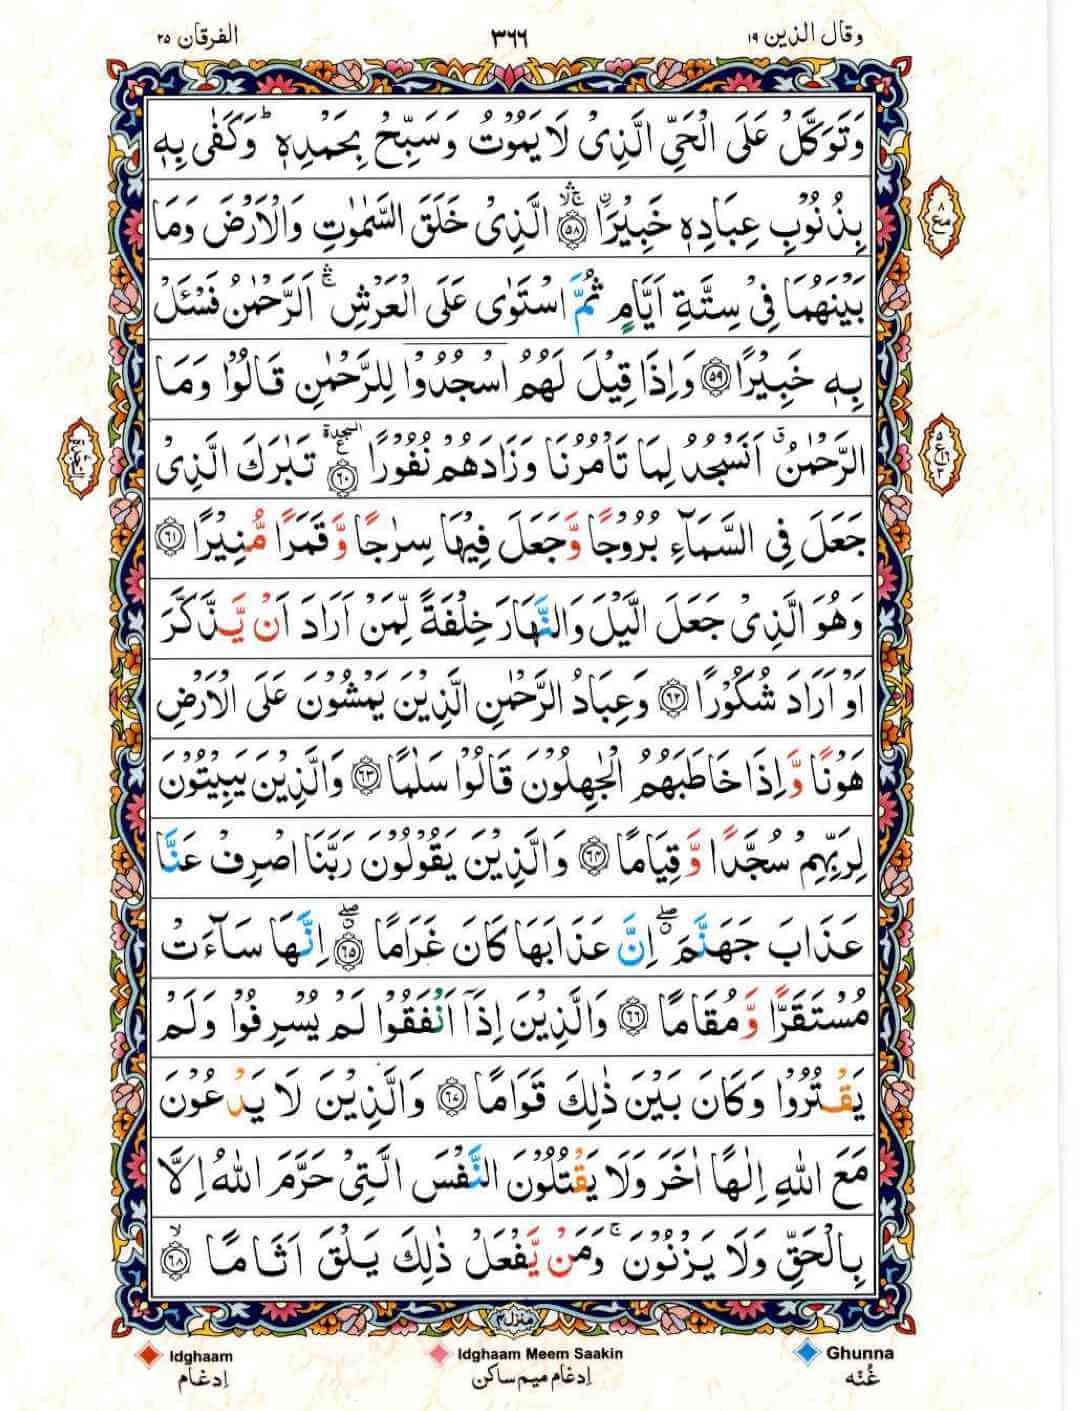 وقال الذين ١٩ ٣٦٦ الفرقان ٢٥
وَتَوَكَّلْ عَلَى الْحَيِّ الَّذِىْ لَا يَمُوْتُ وَسَبِّحْ بِحَمْدِهٖ ؕ وَكَفٰى بِهٖ
بِذُنُوْبِ عِبَادِهٖ خَبِيْرَاۨ ﴿٥٨﴾ الَّذِىْ خَلَقَ السَّمٰوٰتِ وَالْاَرْضَ وَمَا
بَيْنَهُمَا فِىْ سِتَّةِ اَيَّامٍ ثُمَّ اسْتَوٰى عَلَى الْعَرْشِ ۛۚ اَلرَّحْمٰنُ فَسْـَٔلْ
بِهٖ خَبِيْرًا ﴿٥٩﴾ وَاِذَا قِيْلَ لَهُمُ اسْجُدُوْا لِلرَّحْمٰنِ قَالُوْا وَمَا
الرَّحْمٰنُ ۗ اَنَسْجُدُ لِمَا تَاْمُرُنَا وَزَادَهُمْ نُفُوْرًا ﴿٦٠﴾ السجدة تَبٰرَكَ الَّذِىْ
جَعَلَ فِى السَّمَآءِ بُرُوْجًا وَّجَعَلَ فِيْهَا سِرٰجًا وَّقَمَرًا مُّنِيْرًا ﴿٦١﴾
وَهُوَ الَّذِىْ جَعَلَ الَّيْلَ وَالنَّهَارَ خِلْفَةً لِّمَنْ اَرَادَ اَنْ يَّذَّكَّرَ
اَوْ اَرَادَ شُكُوْرًا ﴿٦٢﴾ وَعِبَادُ الرَّحْمٰنِ الَّذِيْنَ يَمْشُوْنَ عَلَى الْاَرْضِ
هَوْنًا وَّاِذَا خَاطَبَهُمُ الْجٰهِلُوْنَ قَالُوْا سَلٰمًا ﴿٦٣﴾ وَالَّذِيْنَ يَبِيْتُوْنَ
لِرَبِّهِمْ سُجَّدًا وَّقِيَامًا ﴿٦٤﴾ وَالَّذِيْنَ يَقُوْلُوْنَ رَبَّنَا اصْرِفْ عَنَّا
عَذَابَ جَهَنَّمَ ۖ اِنَّ عَذَابَهَا كَانَ غَرَامًا ﴿٦٥﴾ ۖ اِنَّهَا سَآءَتْ
مُسْتَقَرًّا وَّمُقَامًا ﴿٦٦﴾ وَالَّذِيْنَ اِذَآ اَنْفَقُوْا لَمْ يُسْرِفُوْا وَلَمْ
يَقْتُرُوْا وَكَانَ بَيْنَ ذٰلِكَ قَوَامًا ﴿٦٧﴾ وَالَّذِيْنَ لَا يَدْعُوْنَ
مَعَ اللّٰهِ اِلٰهًا اٰخَرَ وَلَا يَقْتُلُوْنَ النَّفْسَ الَّتِىْ حَرَّمَ اللّٰهُ اِلَّا
بِالْحَقِّ وَلَا يَزْنُوْنَ ۚ وَمَنْ يَّفْعَلْ ذٰلِكَ يَلْقَ اَثَامًا ﴿٦٨﴾ ۙ
منزل ٤
Idghaam Idghaam Meem Saakin Ghunna
اِدغَام اِدغَام میم ساکن غُنّه